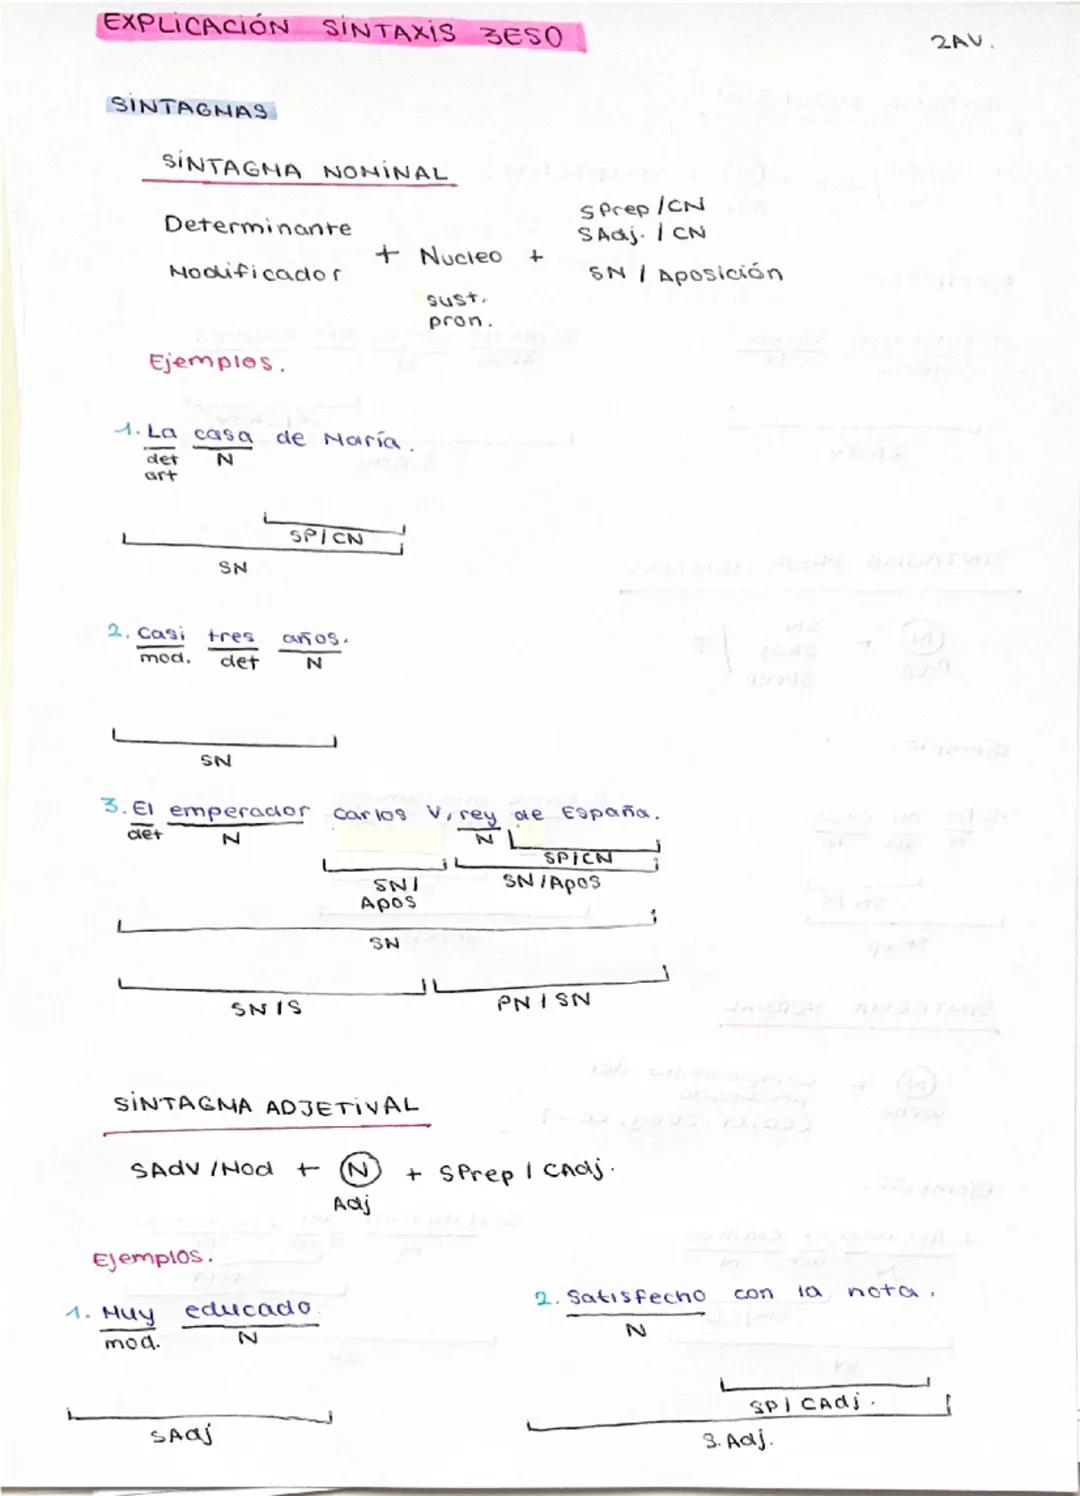 EXPLICACIÓN SINTAXIS 3ESO
2AV.
SINTAGMAS
SINTAGMA NOMINAL
Determinante
Modificador
+ Nucleo +
sust.
pron.
SPrep / CN
SAdj. / CN
SN / Aposición
Ejemplos.
1. La casa de María.
det N
art
SP/CN
SN
2. Casi tres años.
mod. det N
SN
3. El emperador Carlos V, rey de España.
det N N
SP/CN
SN/ SN/Apos
Apos
SN
SN/S PN/SN
SINTAGMA ADJETIVAL
SAdv/Mod + N + SPrep / CAdj.
Adj
Ejemplos.
1. Muy educado.
mod. N
SAdj
2. Satisfecho con la nota.
N
SP/CAdj.
S.Adj.